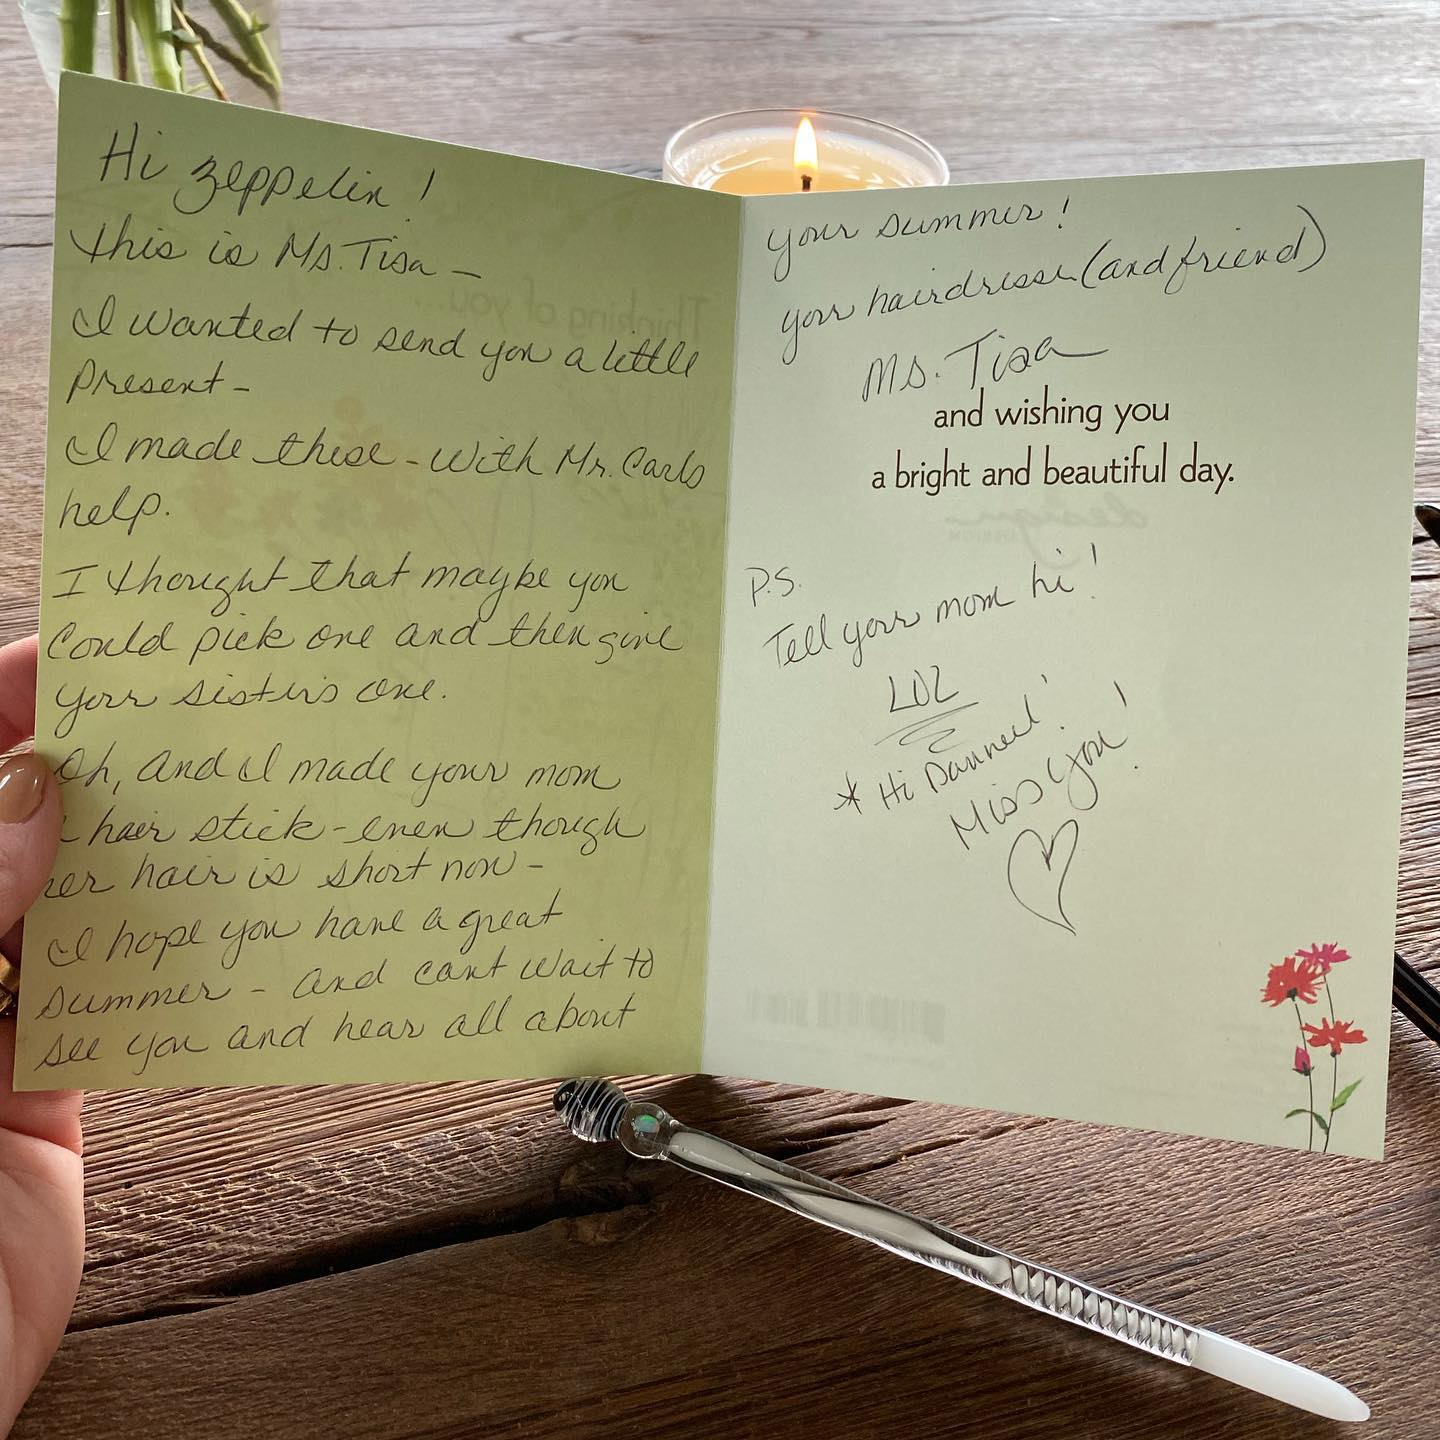 Hi Zeppelin!
this is Ms. Tisa –
I wanted to send you a little
present –
I made these – with Mr. Carls
help.
I thought that maybe you
could pick one and then give
your sisters one.
Oh, and I made your mom
hair stick – even though
her hair is short now –
I hope you have a great
summer – and cant wait to
see you and hear all about
your summer!
your hairdresser (and friend)
Ms. Tisa
and wishing you
a bright and beautiful day.
P.S.
Tell your mom hi!
LOL
* Hi
Miss you!
Thinking of you...
design